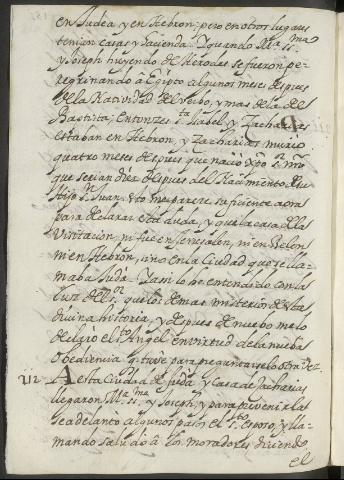 en Judea, y en Hebron: pero en otros lugares
tenian casas y hacienda. Y quando M.ª ss.ma
y Joseph huyendo de Herodes se fueron pe-
regrinando à Egipto algunos meses despues
de la Natividad del Verbo, y mas de la del
Baptista; Entonzes s.ta Isabel y Zacharias
estaban en Hebron, y Zacharias murio
quatro meses despues que nacio Xpto s.r nro
que serian diez despues del Nacimiento de su
Hijo s.n Juan. Yto me parece suficiente aora
para declarar esta duda, y que la casa de la
Visitacion, ni fue en Jerusalen, ni en Belen
ni en Hebron, sino en la Ciudad que se lla-
maba Judà. Y asi lo he entendido con la
luz del s.or que los demas misterios de esta
divina historia, y despues de nuebo me lo
declaró el s.to Angel en virtud de la nueba
obediencia q. tuve para preguntarselo otra vez.
212 A esta Ciudad de Juda y casa de Zacharias
llegaron M.ª ss.ma y Joseph, y para prevenirlas
se adelantó algunos pasos el s.to esposo, y lla-
mando saludó à los moradores diziendo
el